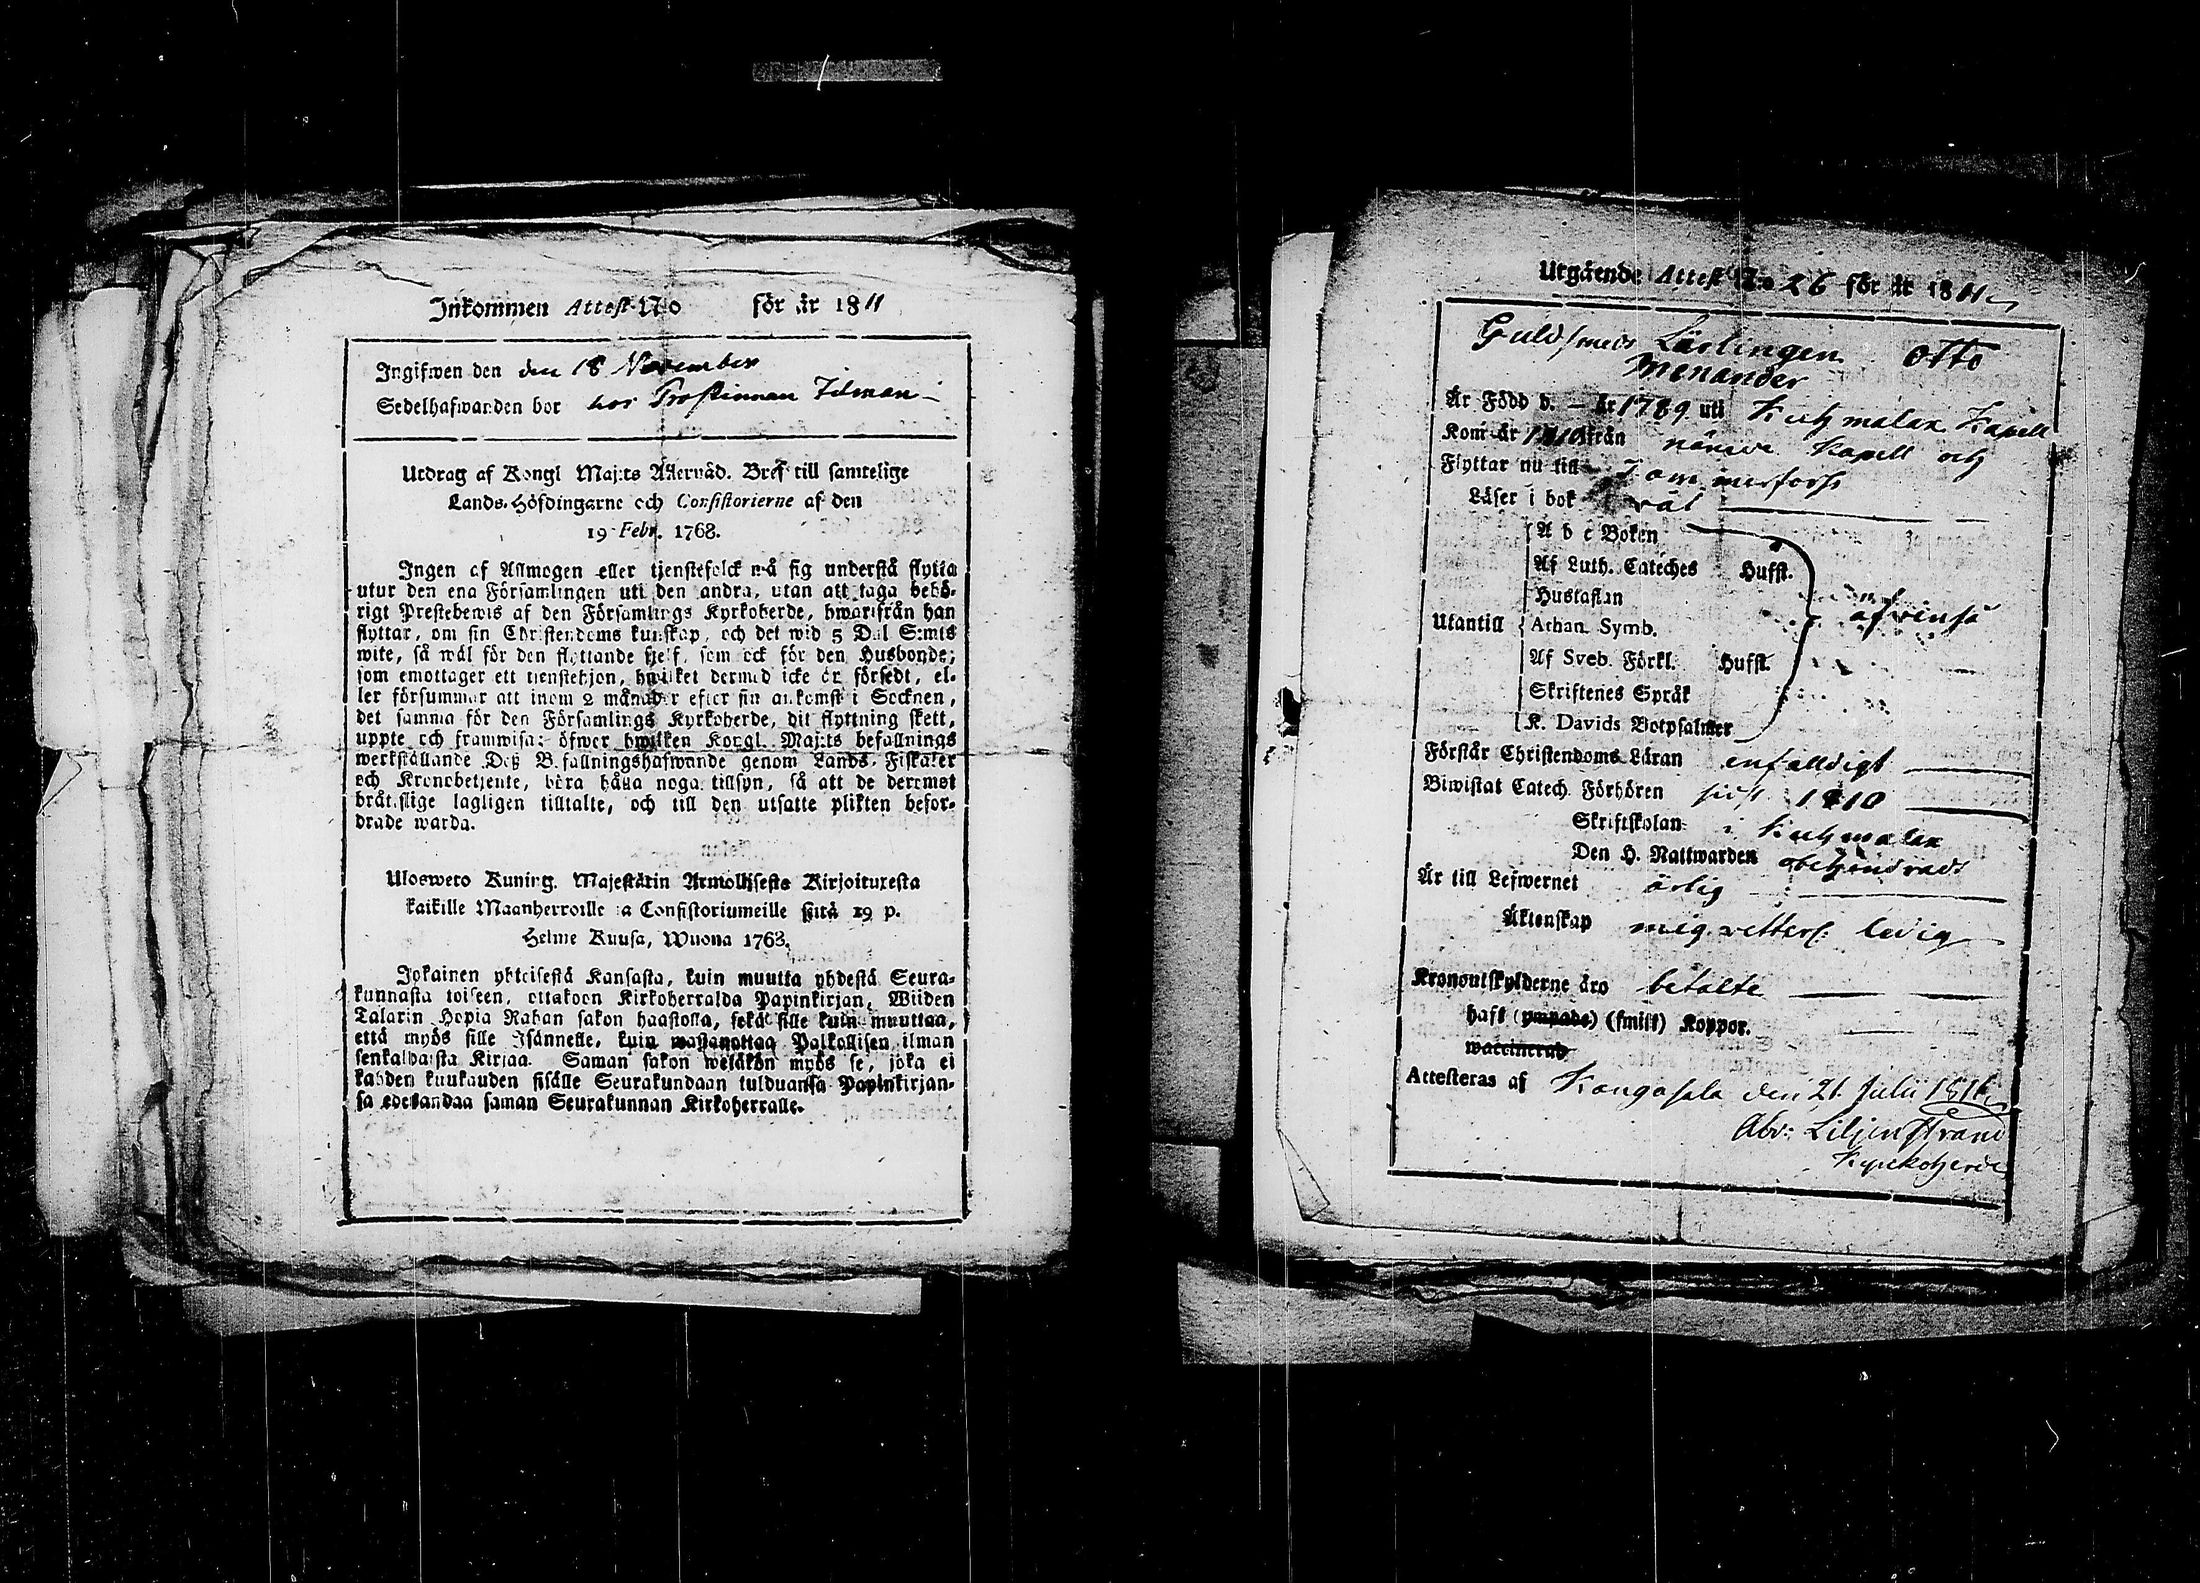 Inkommen Attest No för år 1811
Ingifwen den den 18 November
Sedelhafwanden bor hos Prostinnan Idman
Utdrag af Kongl Maj:ts Allernåd. Bref till samtelige
Lands-Höfdingarne och Consistorierne af den
19 Febr. 1768.
Ingen af Allmogen eller tjenstefolck må sig understå flytta
utur den ena Församlingen uti den andra, utan att taga behö-
rigt Prestebewis af den Församlings Kyrkoherde, hwarifrån han
flyttar, om sin Christendoms kunskap, och det wid 5 Dal S:mts
wite, så wäl för den flyttande sjelf, som ock för den Husbonde;
som emottager ett tjenstehjon, hwilket dermed icke är försedt, el-
ler försummar att inom 2 månader efter sin ankomst i Socknen,
det samma för den Församlings Kyrkoherde, dit flyttning skett,
uppte och framwisa; öfwer hwilken Kongl. Maj:ts befallnings
werkställande Deß Befallningshafwande genom Lands-Fiskaler
och Kronobetjente, böra hålla noga tillsyn, så att de deremot
bråtslige lagligen tilltalte, och till den utsatte plikten befor-
drade warda.
Ulosweto Kuning. Majestätin Armollisesta Kirjoituxesta
kaikille Maanherroille ja Consistoriumeille siitä 19 p.
Helme Kuusa, Wuona 1768.
Jokainen yhteisestä Kansasta, kuin muutta yhdestä Seura-
kunnasta toiseen, ottakoon Kirkoherralda Papinkirjan, Wiiden
Talarin Hopia Rahan sakon haastolla, sekä sille kuin muuttaa,
että myös sille Isännelle, kuin wastanottaa Palkollisen ilman
senkaldaista Kirjaa. Saman sakon weläkön myös se, joka ei
kahden kuukauden sisälle Seurakundaan tulduansa Papinkirjan-
sa edesandaa saman Seurakunnan Kirkoherralle.
Utgående Attest No 26 för år 1811
Guldsmeds Lärlingen Otto
Menander
Är Född d. – år 1789 uti Kuhmalax Kapell
Kom år 1810 från nämde Kapell och
Flyttar nu till Tammerfors
Läser i bok väl
A b c Boken
Af Luth. Cateches Husst.
Hustaflan
Utantill Athan. Symb. afvinsa
Af Sveb. Förkl. Husst.
Skriftenes Språk
K. Davids Botpsalmer
Förstår Christendoms Läran enfalldigt
Biwistat Catech. Förhören sidst 1810
Skriftskolan i Kuhmalax
Den H. Nattwarden obehindrad
Är till Lefwernet ärlig
Äktenskap mig vetterl: ledig
Kronoutskylderne äro betalte
haft (ympade) (smitt) Koppor.
waccinerad
Attesteras af Kangasala den 21 Julii 1811
Abr: Liljenstrand
Kyrckoherde